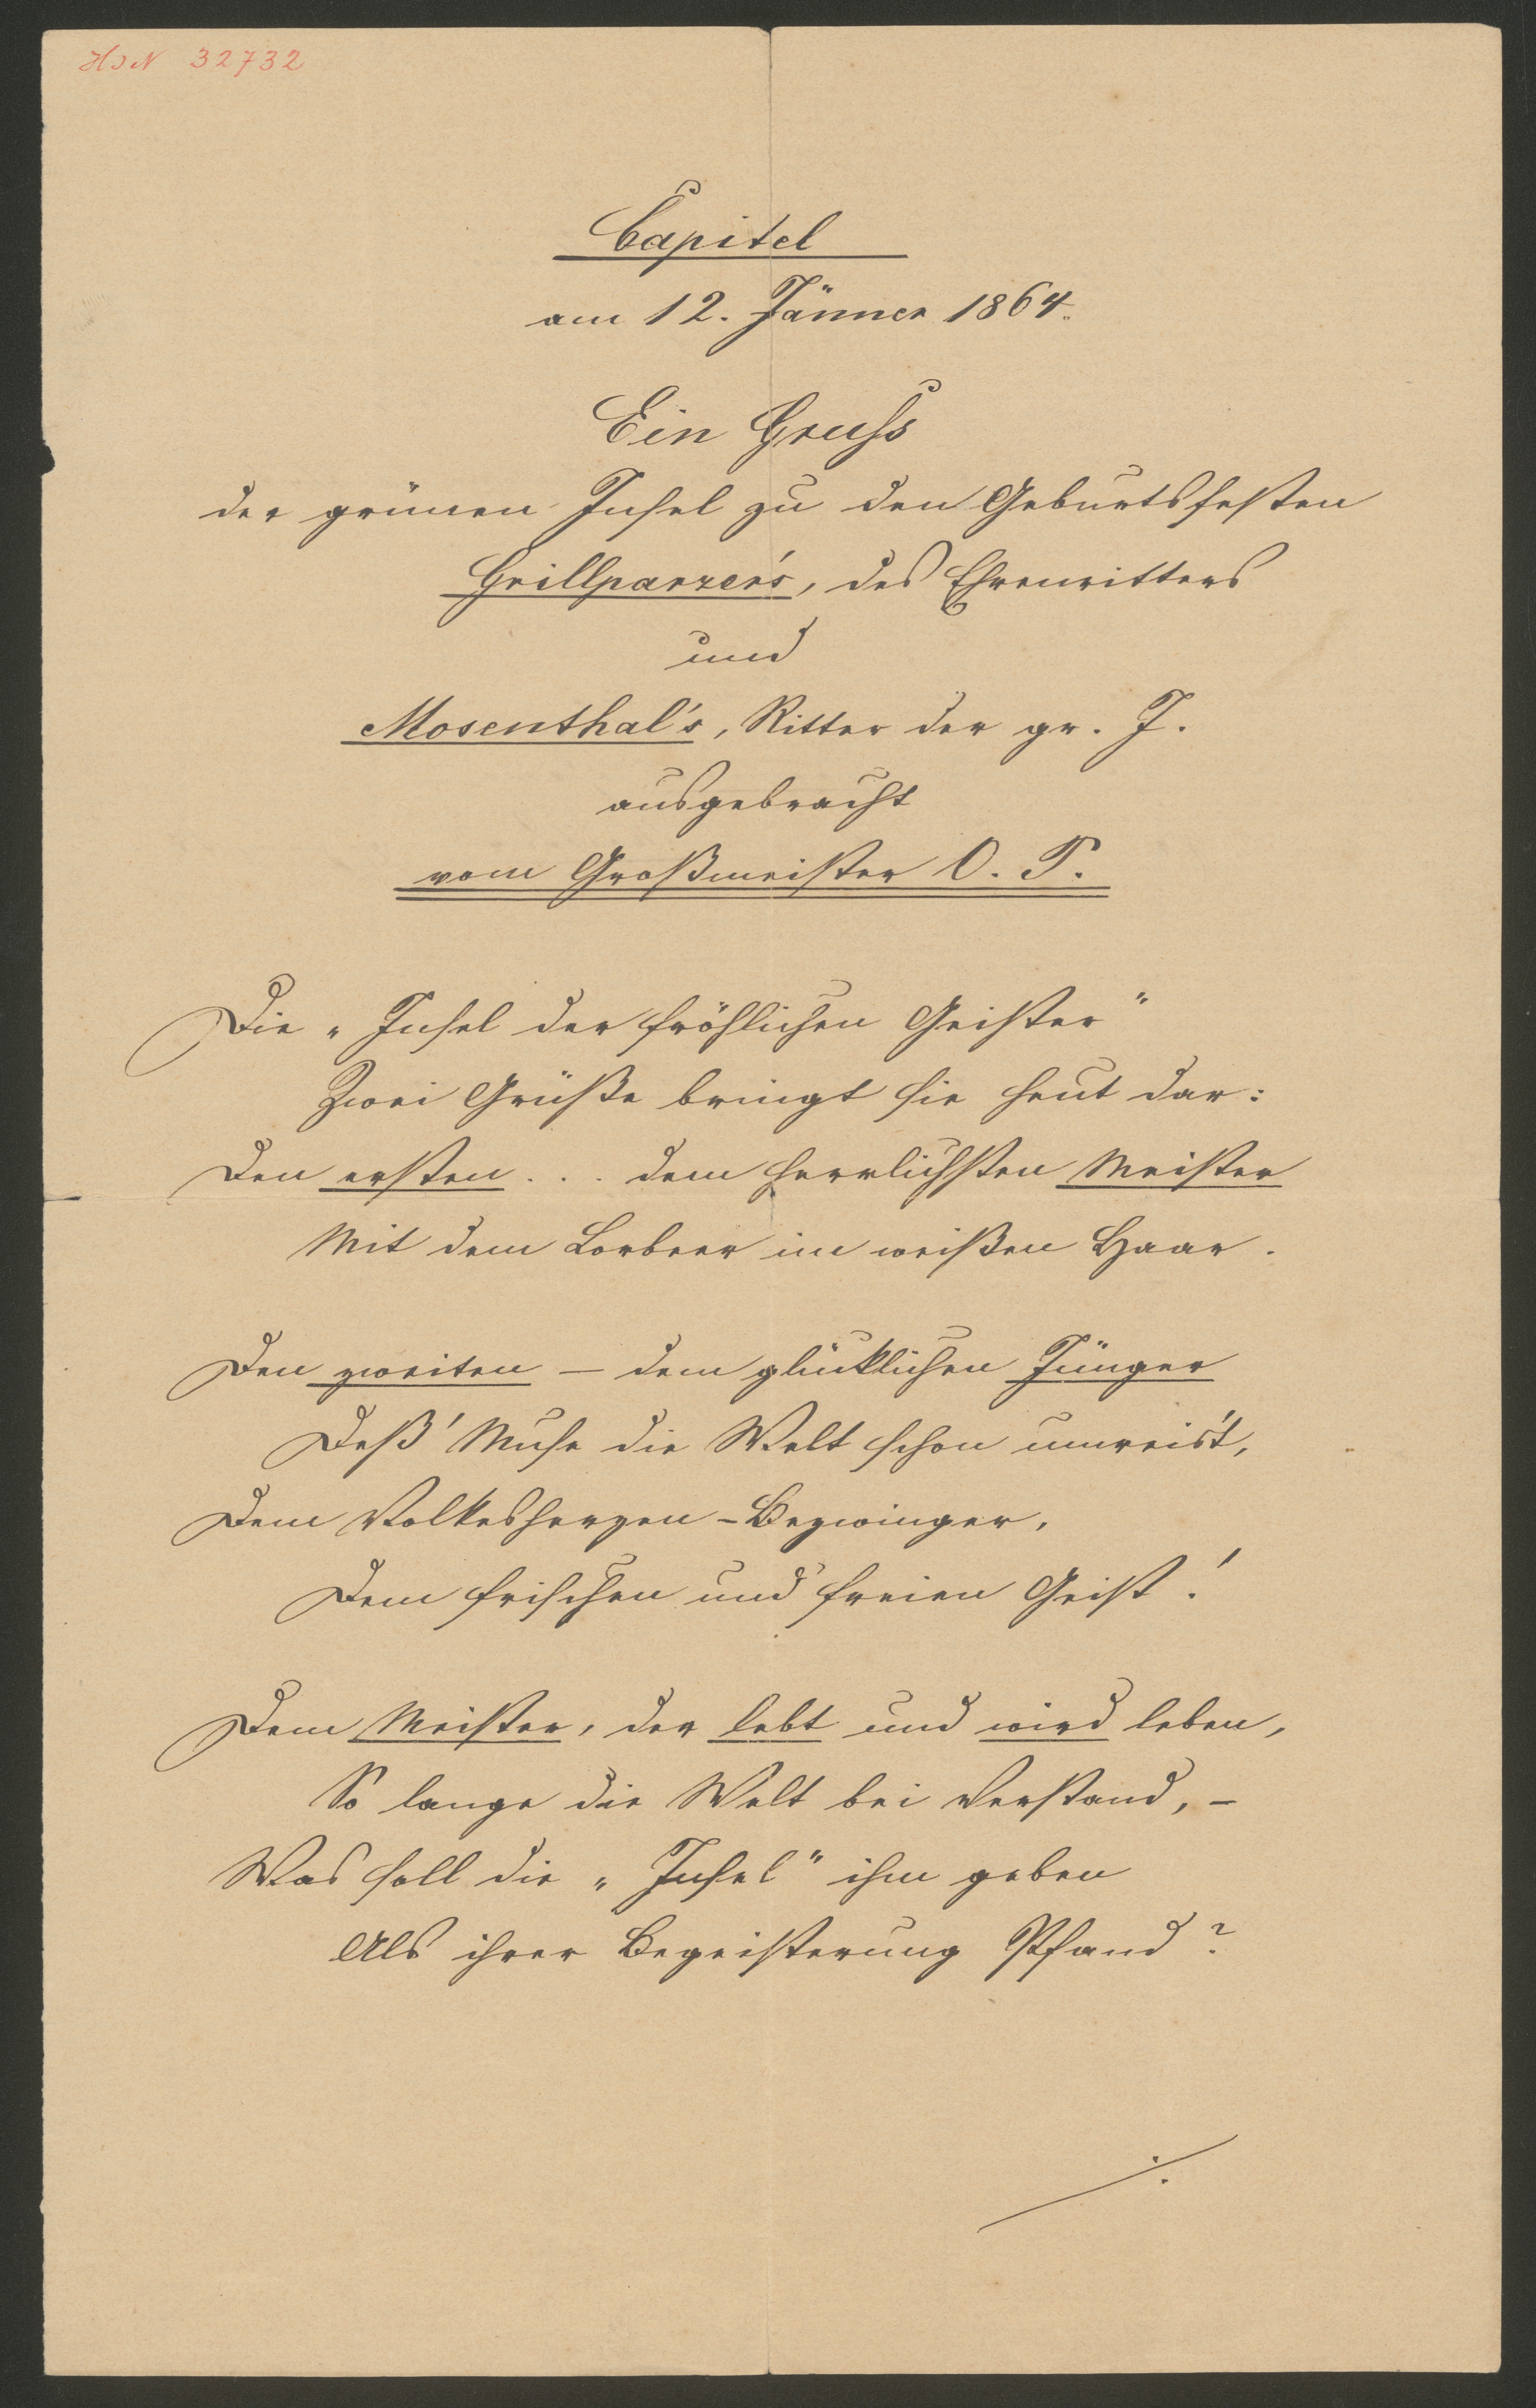 HIN 32732
Capitel
am 12. Jänner 1864.
Ein Gruß
der grünen Insel zu den Geburtsfesten
Grillparzer's, des Ehrenritters
und
Mosenthal's, Ritter der gr. I.
ausgebracht
vom Großmeister O. P.
Die „Insel der fröhlichen Geister"
Zwei Grüße bringt sie heut dar:
Den ersten . . . dem herrlichsten Meister
Mit dem Lorbeer im weißen Haar.
Den zweiten – dem glücklichen Jünger
Deß' Muse die Welt schon umreis't,
Dem Volkesherzen-Bezwinger,
Dem frischen und freien Geist!
Dem Meister, der lebt und wird leben,
So lange die Welt bei Verstand, –
Was soll die „Insel" ihm geben
Als ihrer Begeisterung Pfand?
./.